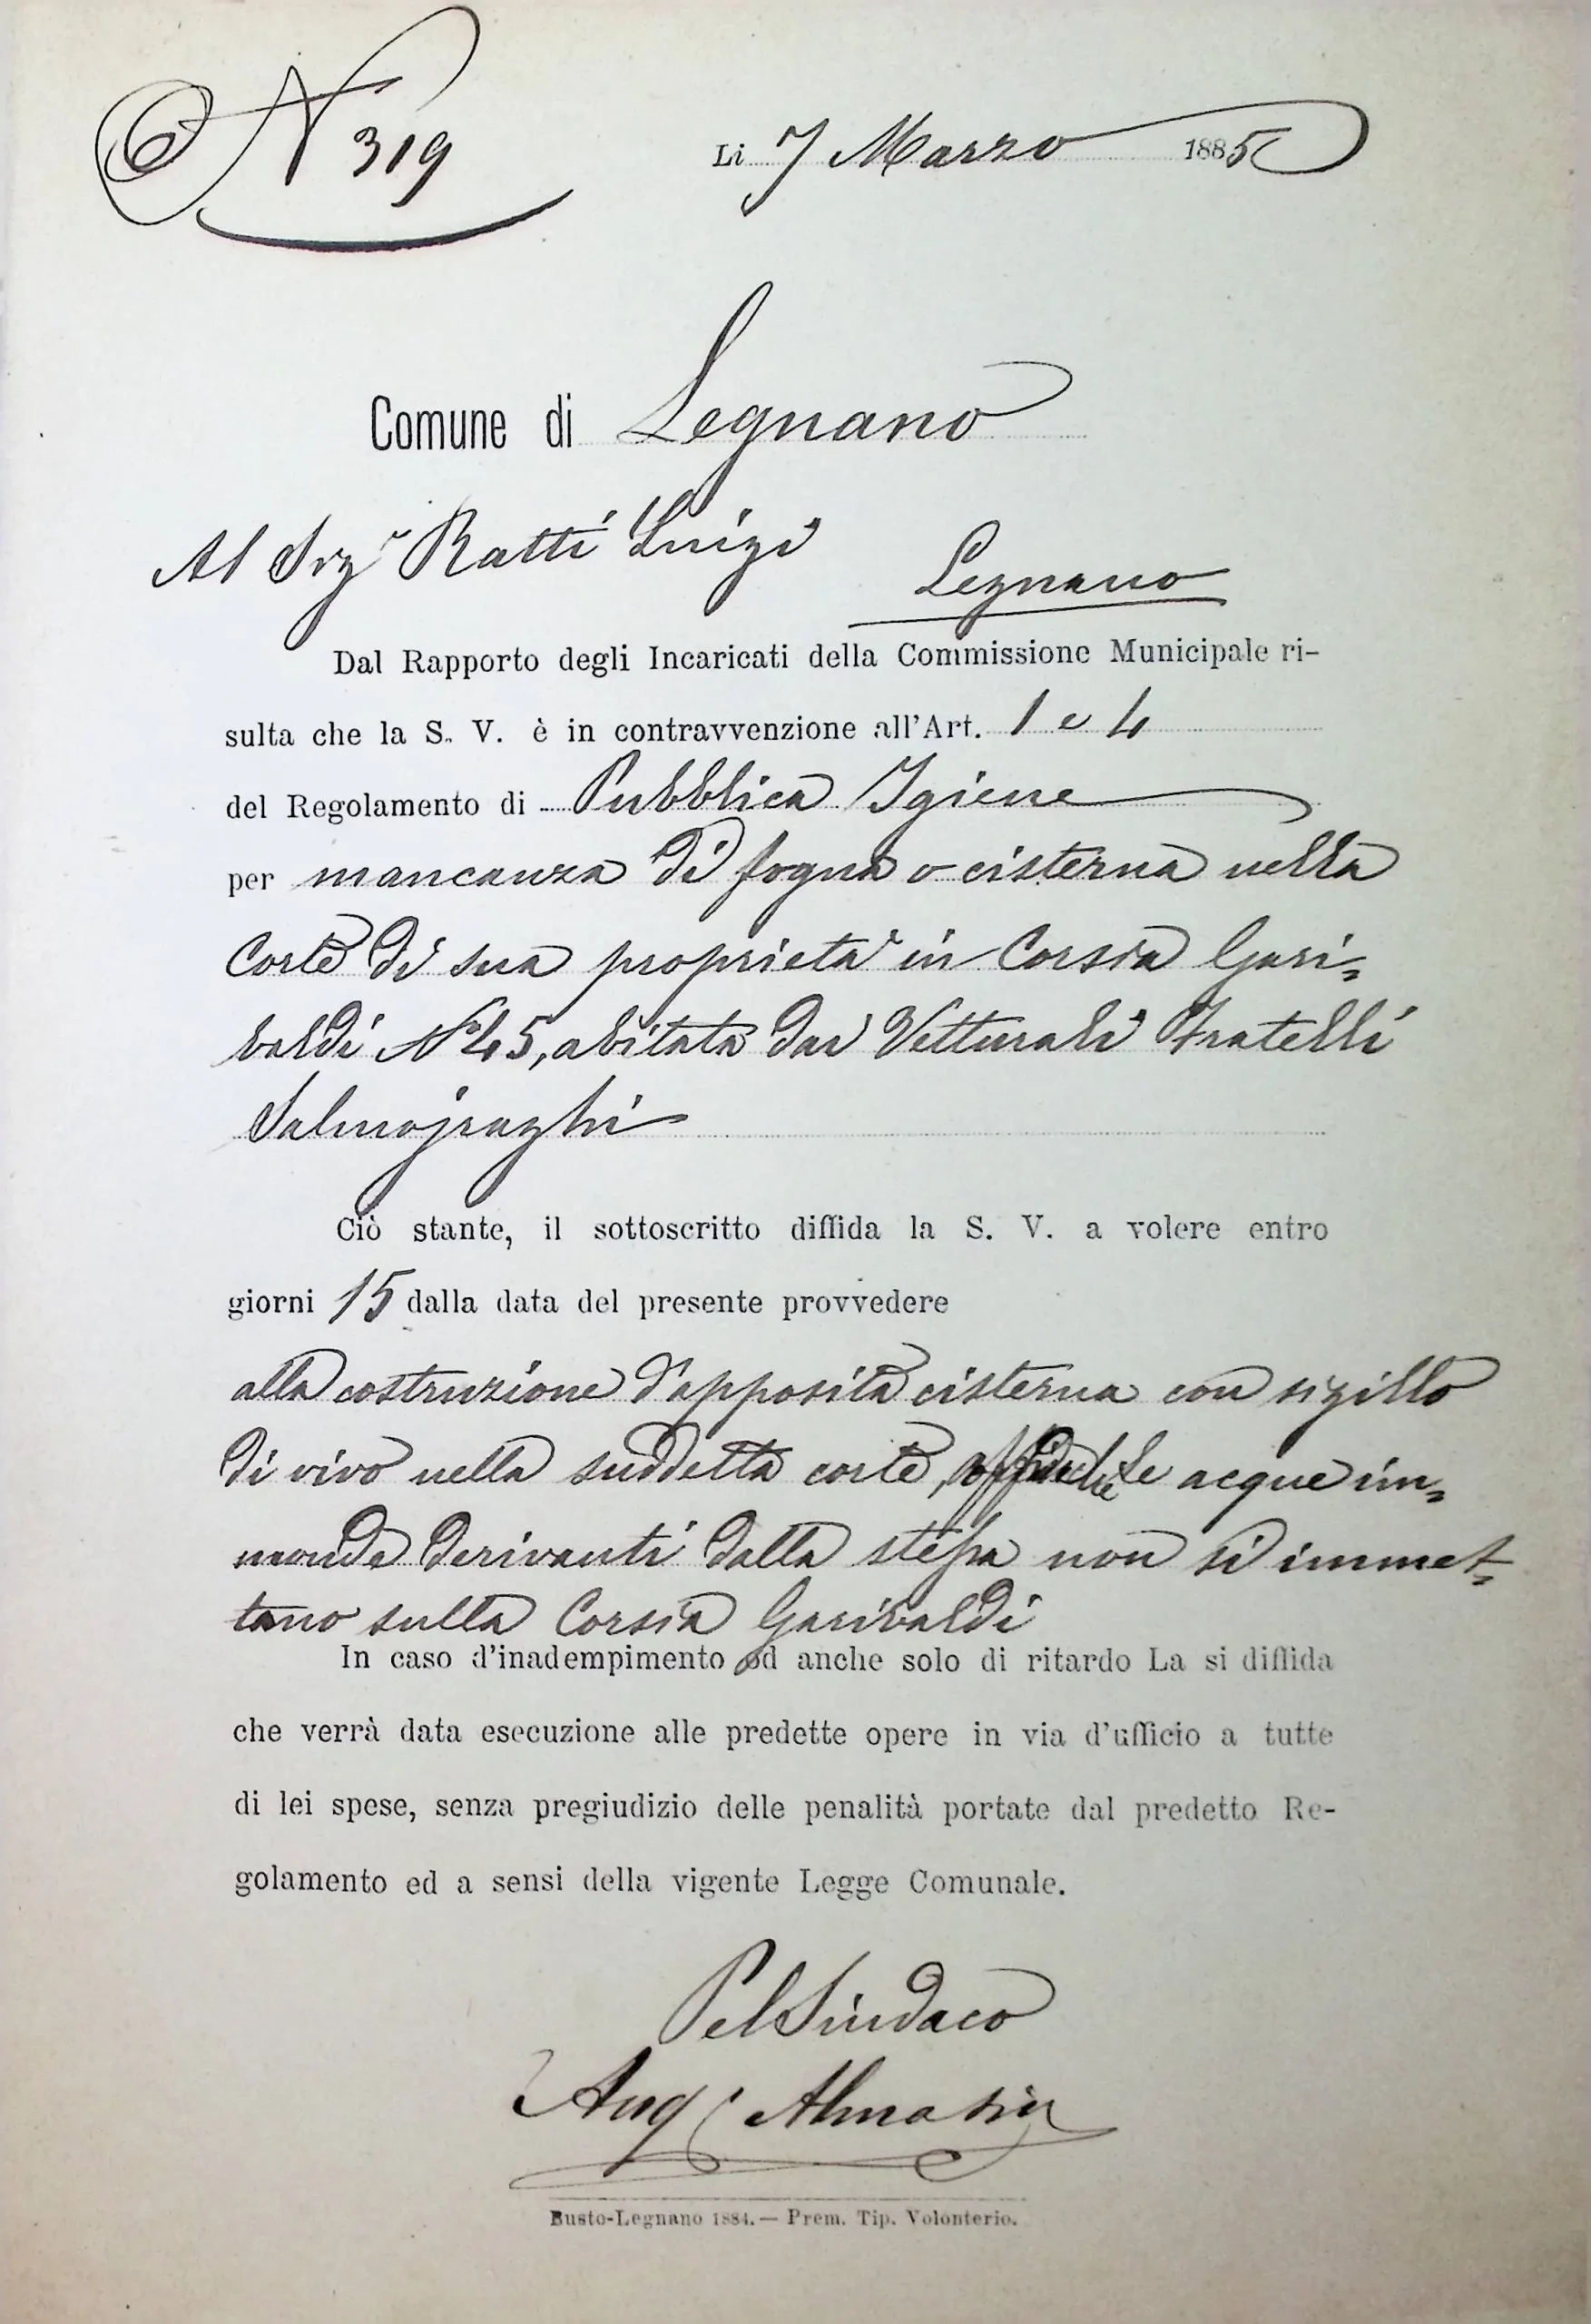 N 319
Li 7 Marzo 1885
Comune di Legnano
Al Sigr Ratti Luigi
Legnano
Dal Rapporto degli Incaricati della Commissione Municipale ri-
sulta che la S. V. è in contravvenzione all'Art. 1 e 4
del Regolamento di Pubblica Igiene
per mancanza di fogna o cisterna nella
Corte di sua proprietà in Corsia Gari=
baldi N° 45, abitata dai Vetturali Fratelli
Salmojraghi
Ciò stante, il sottoscritto diffida la S. V. a volere entro
giorni 15 dalla data del presente provvedere
alla costruzione d'apposita cisterna con sigillo
di vivo nella suddetta corte, affinchè le acque im=
monde derivanti dalla stessa non si immet=
tano sulla Corsia Garibaldi
In caso d'inadempimento od anche solo di ritardo La si diffida
che verrà data esecuzione alle predette opere in via d'ufficio a tutte
di lei spese, senza pregiudizio delle penalità portate dal predetto Re-
golamento ed a sensi della vigente Legge Comunale.
Pel Sindaco
Busto-Legnano 1884. — Prem. Tip. Volonterio.